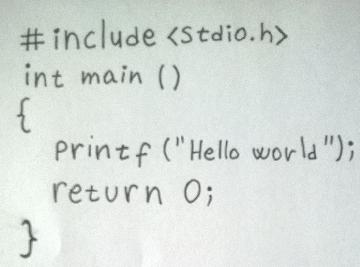 #include <stdio.h>
int main ()
{
printf ("Hello world");
return 0;
}